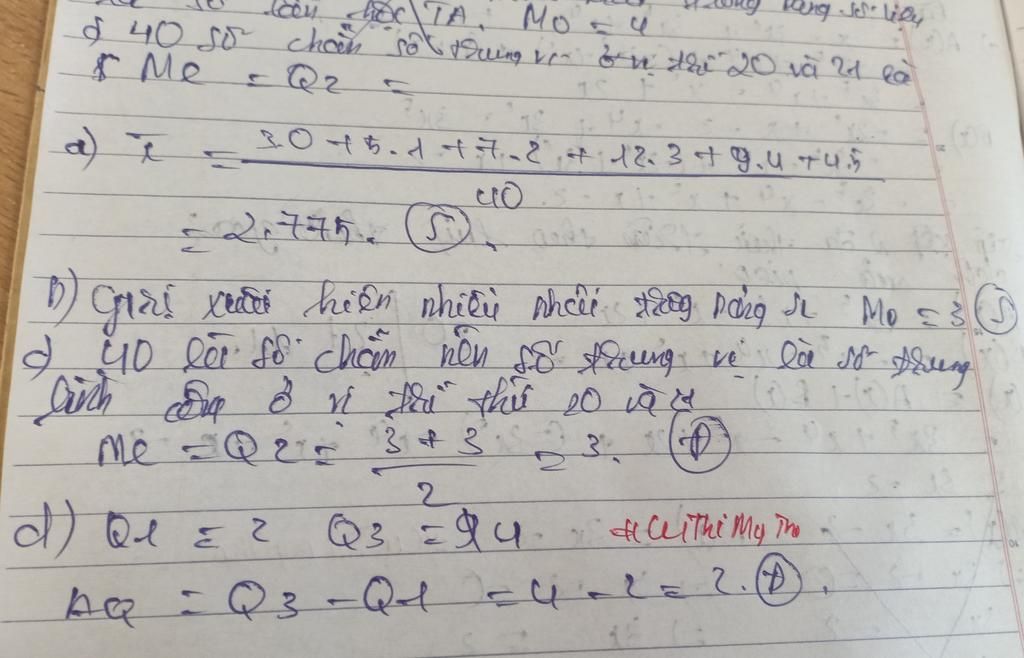 số toán học TA. Mo = 4
40 số chẵn số trung vị ở vị trí 20 và 21 là
Me = Q2 =
a) x̄ = 3.0 + 5.1 + 7.2 + 12.3 + 9.4 + 4.5
40
= 2.775. S.
b) Giá xuất hiện nhiều nhất trong bảng Mo = 3 S
c) 40 là số chẵn nên số trung vị là số trung
bình cộng ở vị trí thứ 20 và 21
Me = Q2 = 3 + 3 = 3. Đ
2
d) Q1 = 2 Q3 = 4
ΔQ = Q3 - Q1 = 4 - 2 = 2. Đ.